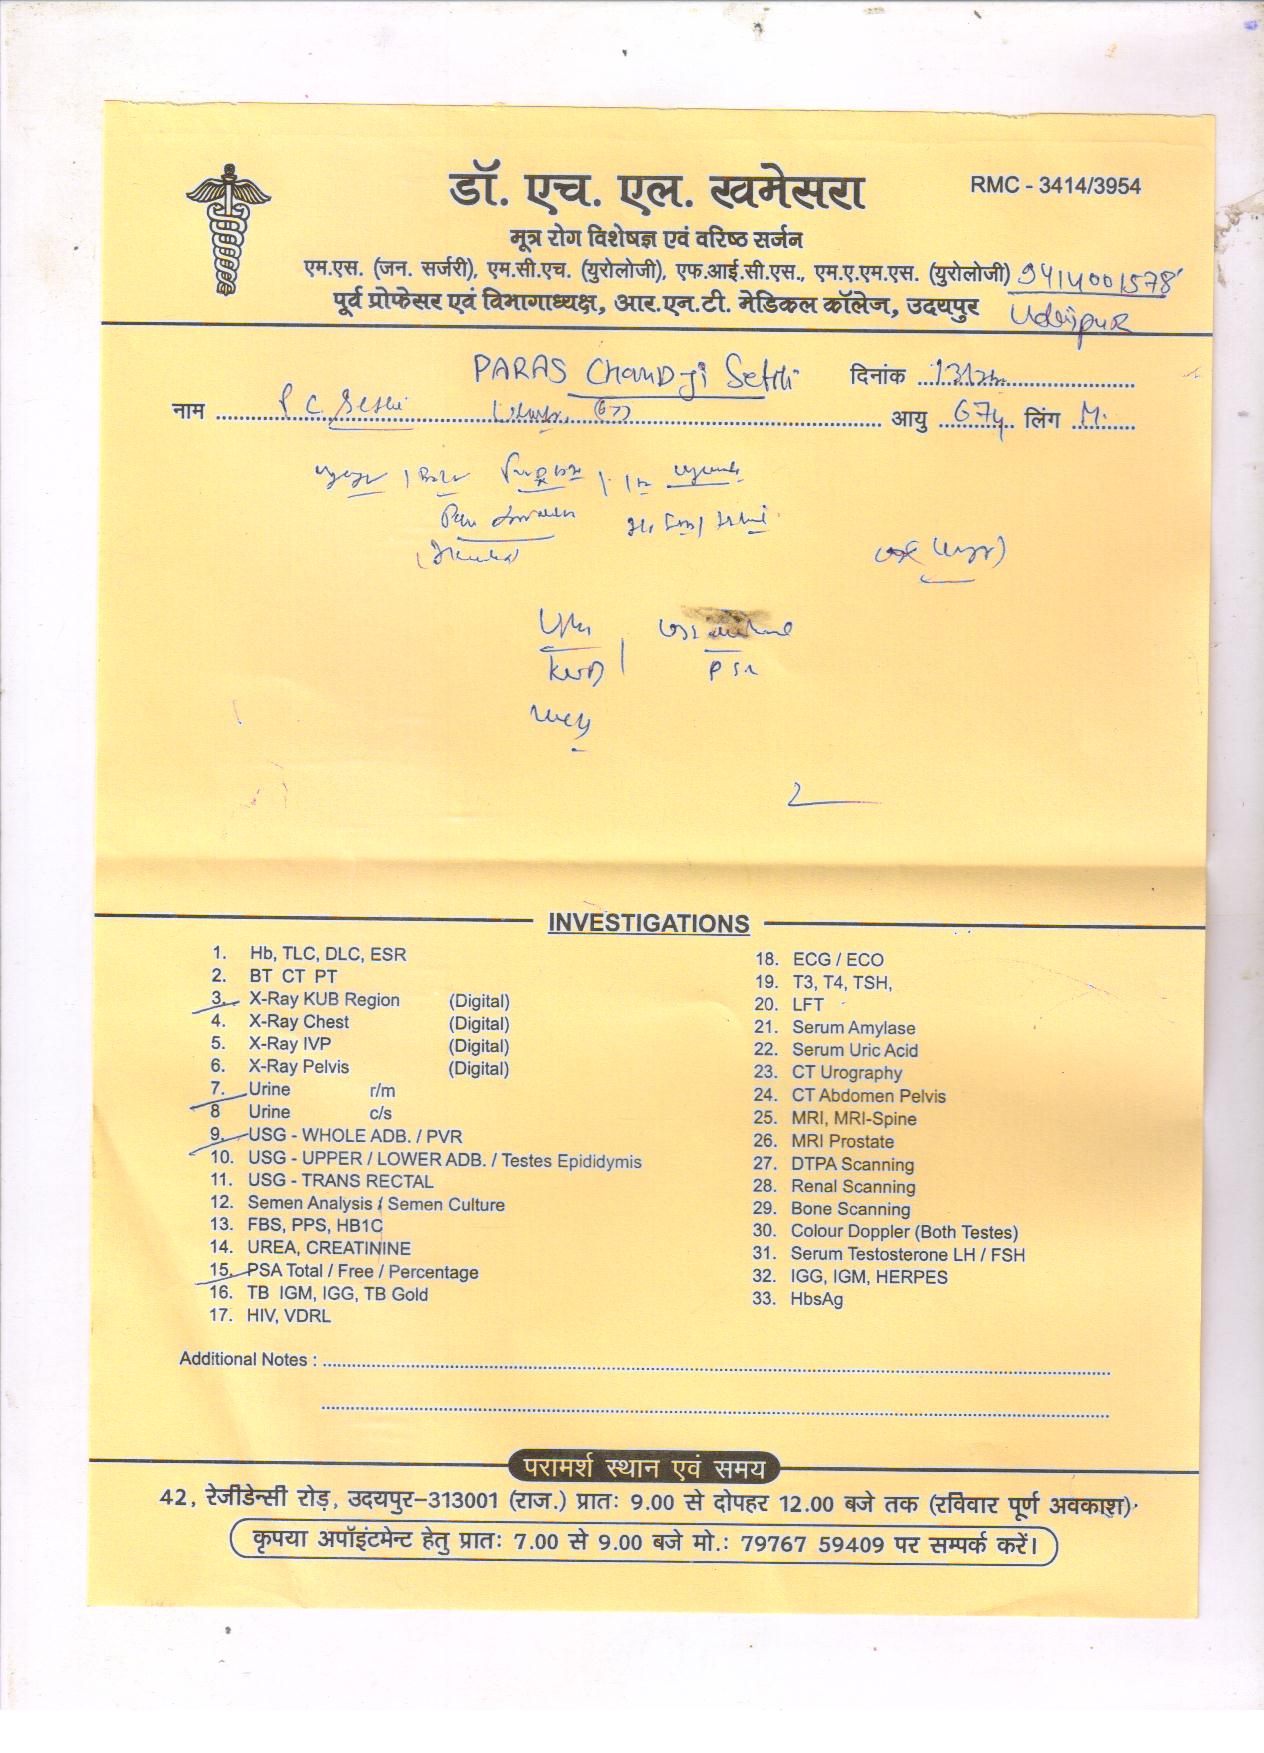 डॉ. एच. एल. खमेसरा
RMC - 3414/3954
मूत्र रोग विशेषज्ञ एवं वरिष्ठ सर्जन
एम.एस. (जन. सर्जरी), एम.सी.एच. (युरोलोजी), एफ.आई.सी.एस., एम.ए.एम.एस. (युरोलोजी) 9414001578
पूर्व प्रोफेसर एवं विभागाध्यक्ष, आर.एन.टी. मेडिकल कॉलेज, उदयपुर Udaipur
PARAS Chand Ji Sethi दिनांक
नाम P C Sethi आयु 67y लिंग M.
INVESTIGATIONS
1. Hb, TLC, DLC, ESR
2. BT CT PT
3. X-Ray KUB Region (Digital)
4. X-Ray Chest (Digital)
5. X-Ray IVP (Digital)
6. X-Ray Pelvis (Digital)
7. Urine r/m
8 Urine c/s
9. USG - WHOLE ADB. / PVR
10. USG - UPPER / LOWER ADB. / Testes Epididymis
11. USG - TRANS RECTAL
12. Semen Analysis / Semen Culture
13. FBS, PPS, HB1C
14. UREA, CREATININE
15. PSA Total / Free / Percentage
16. TB IGM, IGG, TB Gold
17. HIV, VDRL
18. ECG / ECO
19. T3, T4, TSH,
20. LFT
21. Serum Amylase
22. Serum Uric Acid
23. CT Urography
24. CT Abdomen Pelvis
25. MRI, MRI-Spine
26. MRI Prostate
27. DTPA Scanning
28. Renal Scanning
29. Bone Scanning
30. Colour Doppler (Both Testes)
31. Serum Testosterone LH / FSH
32. IGG, IGM, HERPES
33. HbsAg
Additional Notes :
परामर्श स्थान एवं समय
42, रेजीडेन्सी रोड़, उदयपुर-313001 (राज.) प्रातः 9.00 से दोपहर 12.00 बजे तक (रविवार पूर्ण अवकाश)
कृपया अपॉइंटमेन्ट हेतु प्रातः 7.00 से 9.00 बजे मो.: 79767 59409 पर सम्पर्क करें।